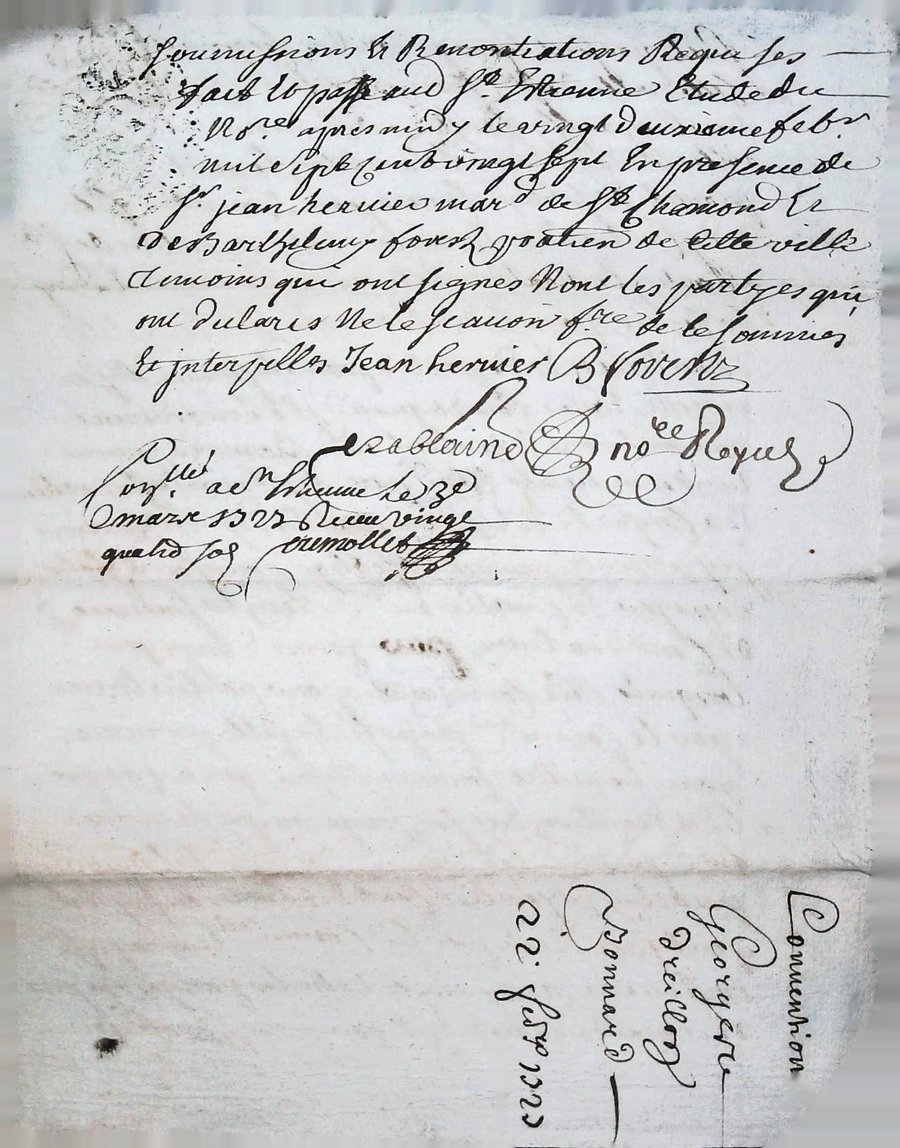 soumissions et Renontiations Requises
fait et passé aud St. Estienne Etude du
No.re apres midy le vingt deuxieme febr
mil sept cent vingt sept En presence de
Sr. jean hervier mard de St. Chamond Et
de Barthelemy forest praticien de cette ville
temoins qui ont signes Nont les partyes qui
ont declares ne le scavoir f.re de ce sommes
et interpelles Jean hervier B forest
no.re Royal
Con.llé a St. Etienne le 3e
mars 1727 Receu vingt
quatre sols
Convention
George
Dreillon
Bonnard
22. febr. 1727